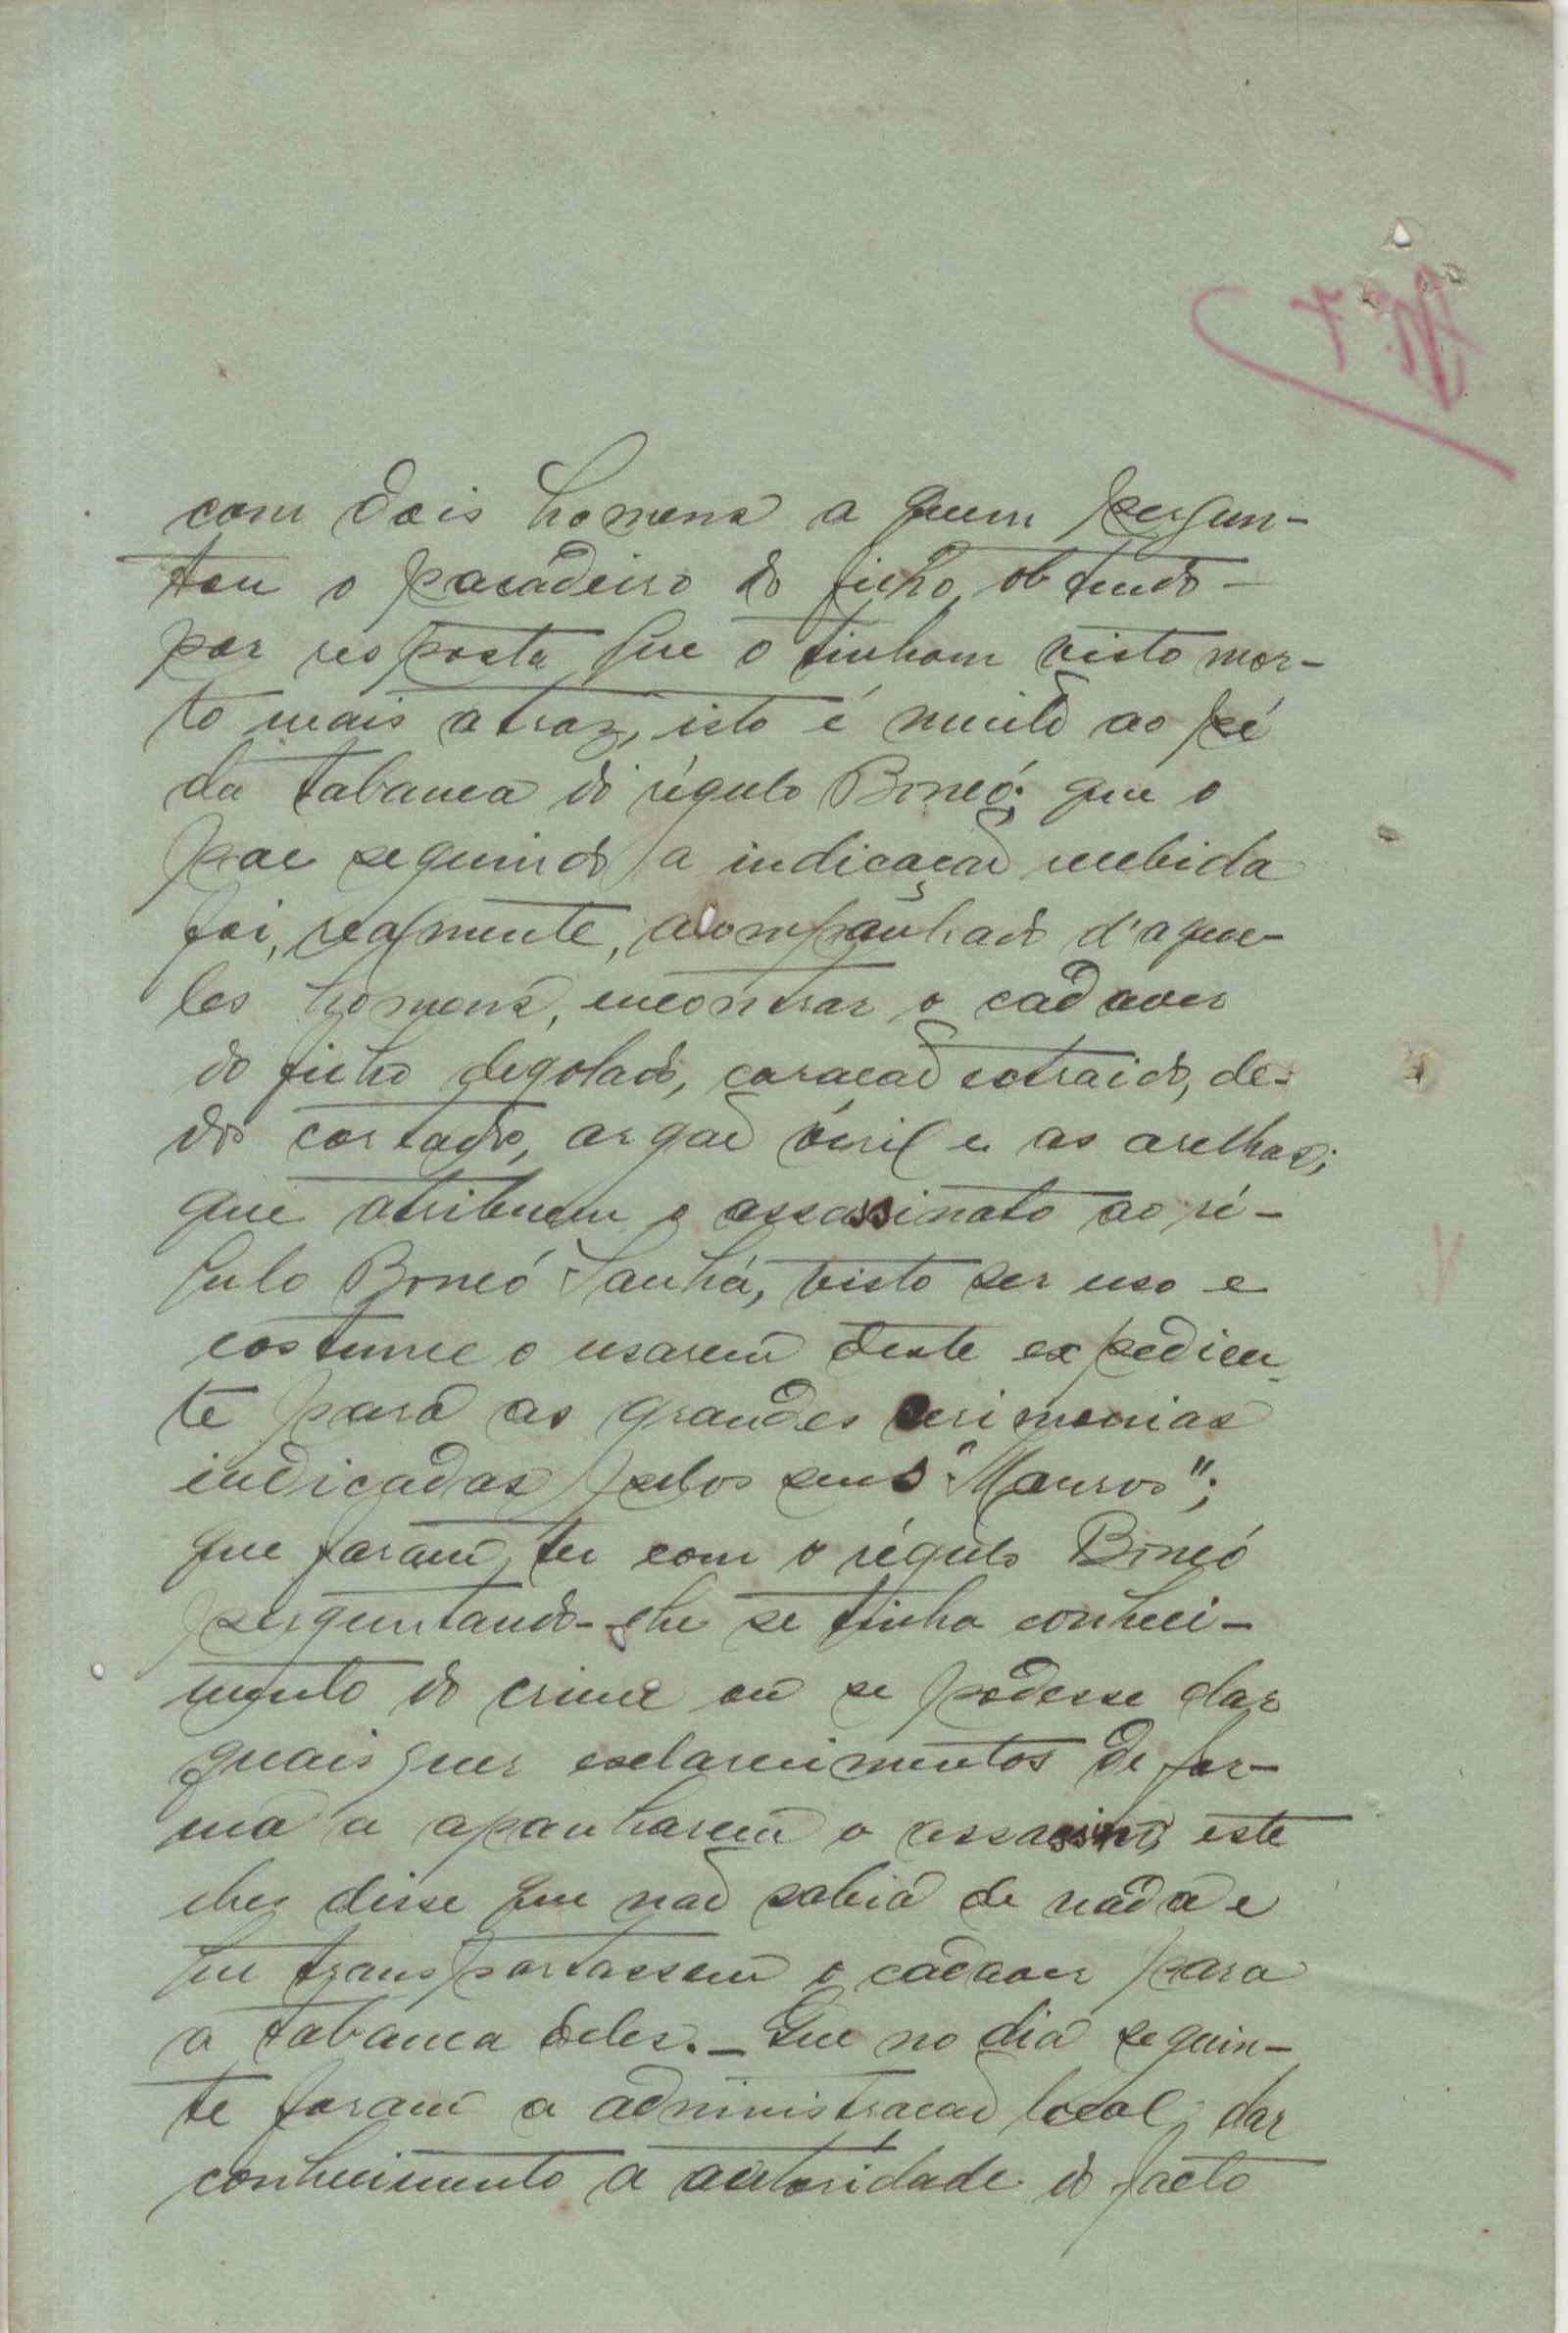 com dois homens a quem pergun-
tou o paradeiro do filho, obtendo-
por resposta que o tinham visto mor-
to mais atraz, isto é muito ao pé
da tabanca do régulo Boncó; que o
pae seguindo a indicação recebida
foi, realmente, acompanhado d'aque-
les homens, encontrar o cadaver
do filho degolado, coração extraido, de-
dos cortados, orgão viril e as orelhas;
que atribuem o assassinato ao ré-
gulo Boncó Sanhá, visto ser uso e
costume o usarem deste expedien-
te para as grandes cerimonias
indicadas pelos seus "Mouros";
que foram ter com o régulo Boncó
perguntando-lhe se tinha conheci-
mento do crime ou se podesse dar
quaisquer esclarecimentos de for-
ma a apanharem o assassino, este
lhes disse que não sabia de nada e
que transportassem o cadaver para
a tabanca deles._ Que no dia seguin-
te foram a administração local, dar
conhecimento a autoridade do facto